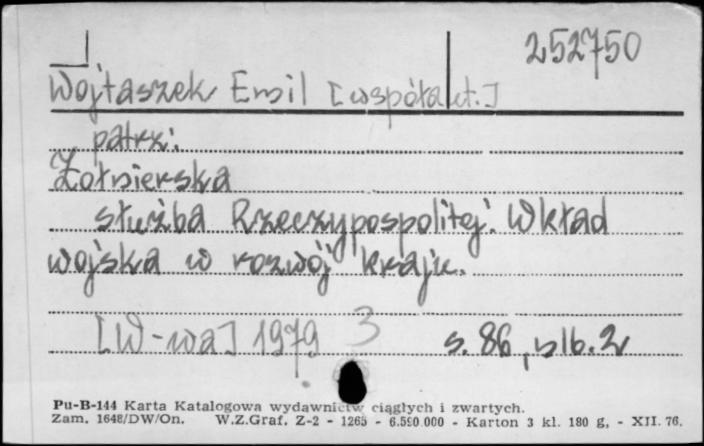 252750
Wojtaszek Emil [współaut.]
patrz:
Żołnierska
służba Rzeczypospolitej. Wkład
wojska w rozwój kraju.
[W-wa] 1979 3 s. 86, nlb. 2
Pu-B-144 Karta Katalogowa wydawnictw ciągłych i zwartych.
Zam. 1648/DW/On. W.Z.Graf. Z-2 - 1265 - 6.590.000 - Karton 3 kl. 180 g, - XII. 76.